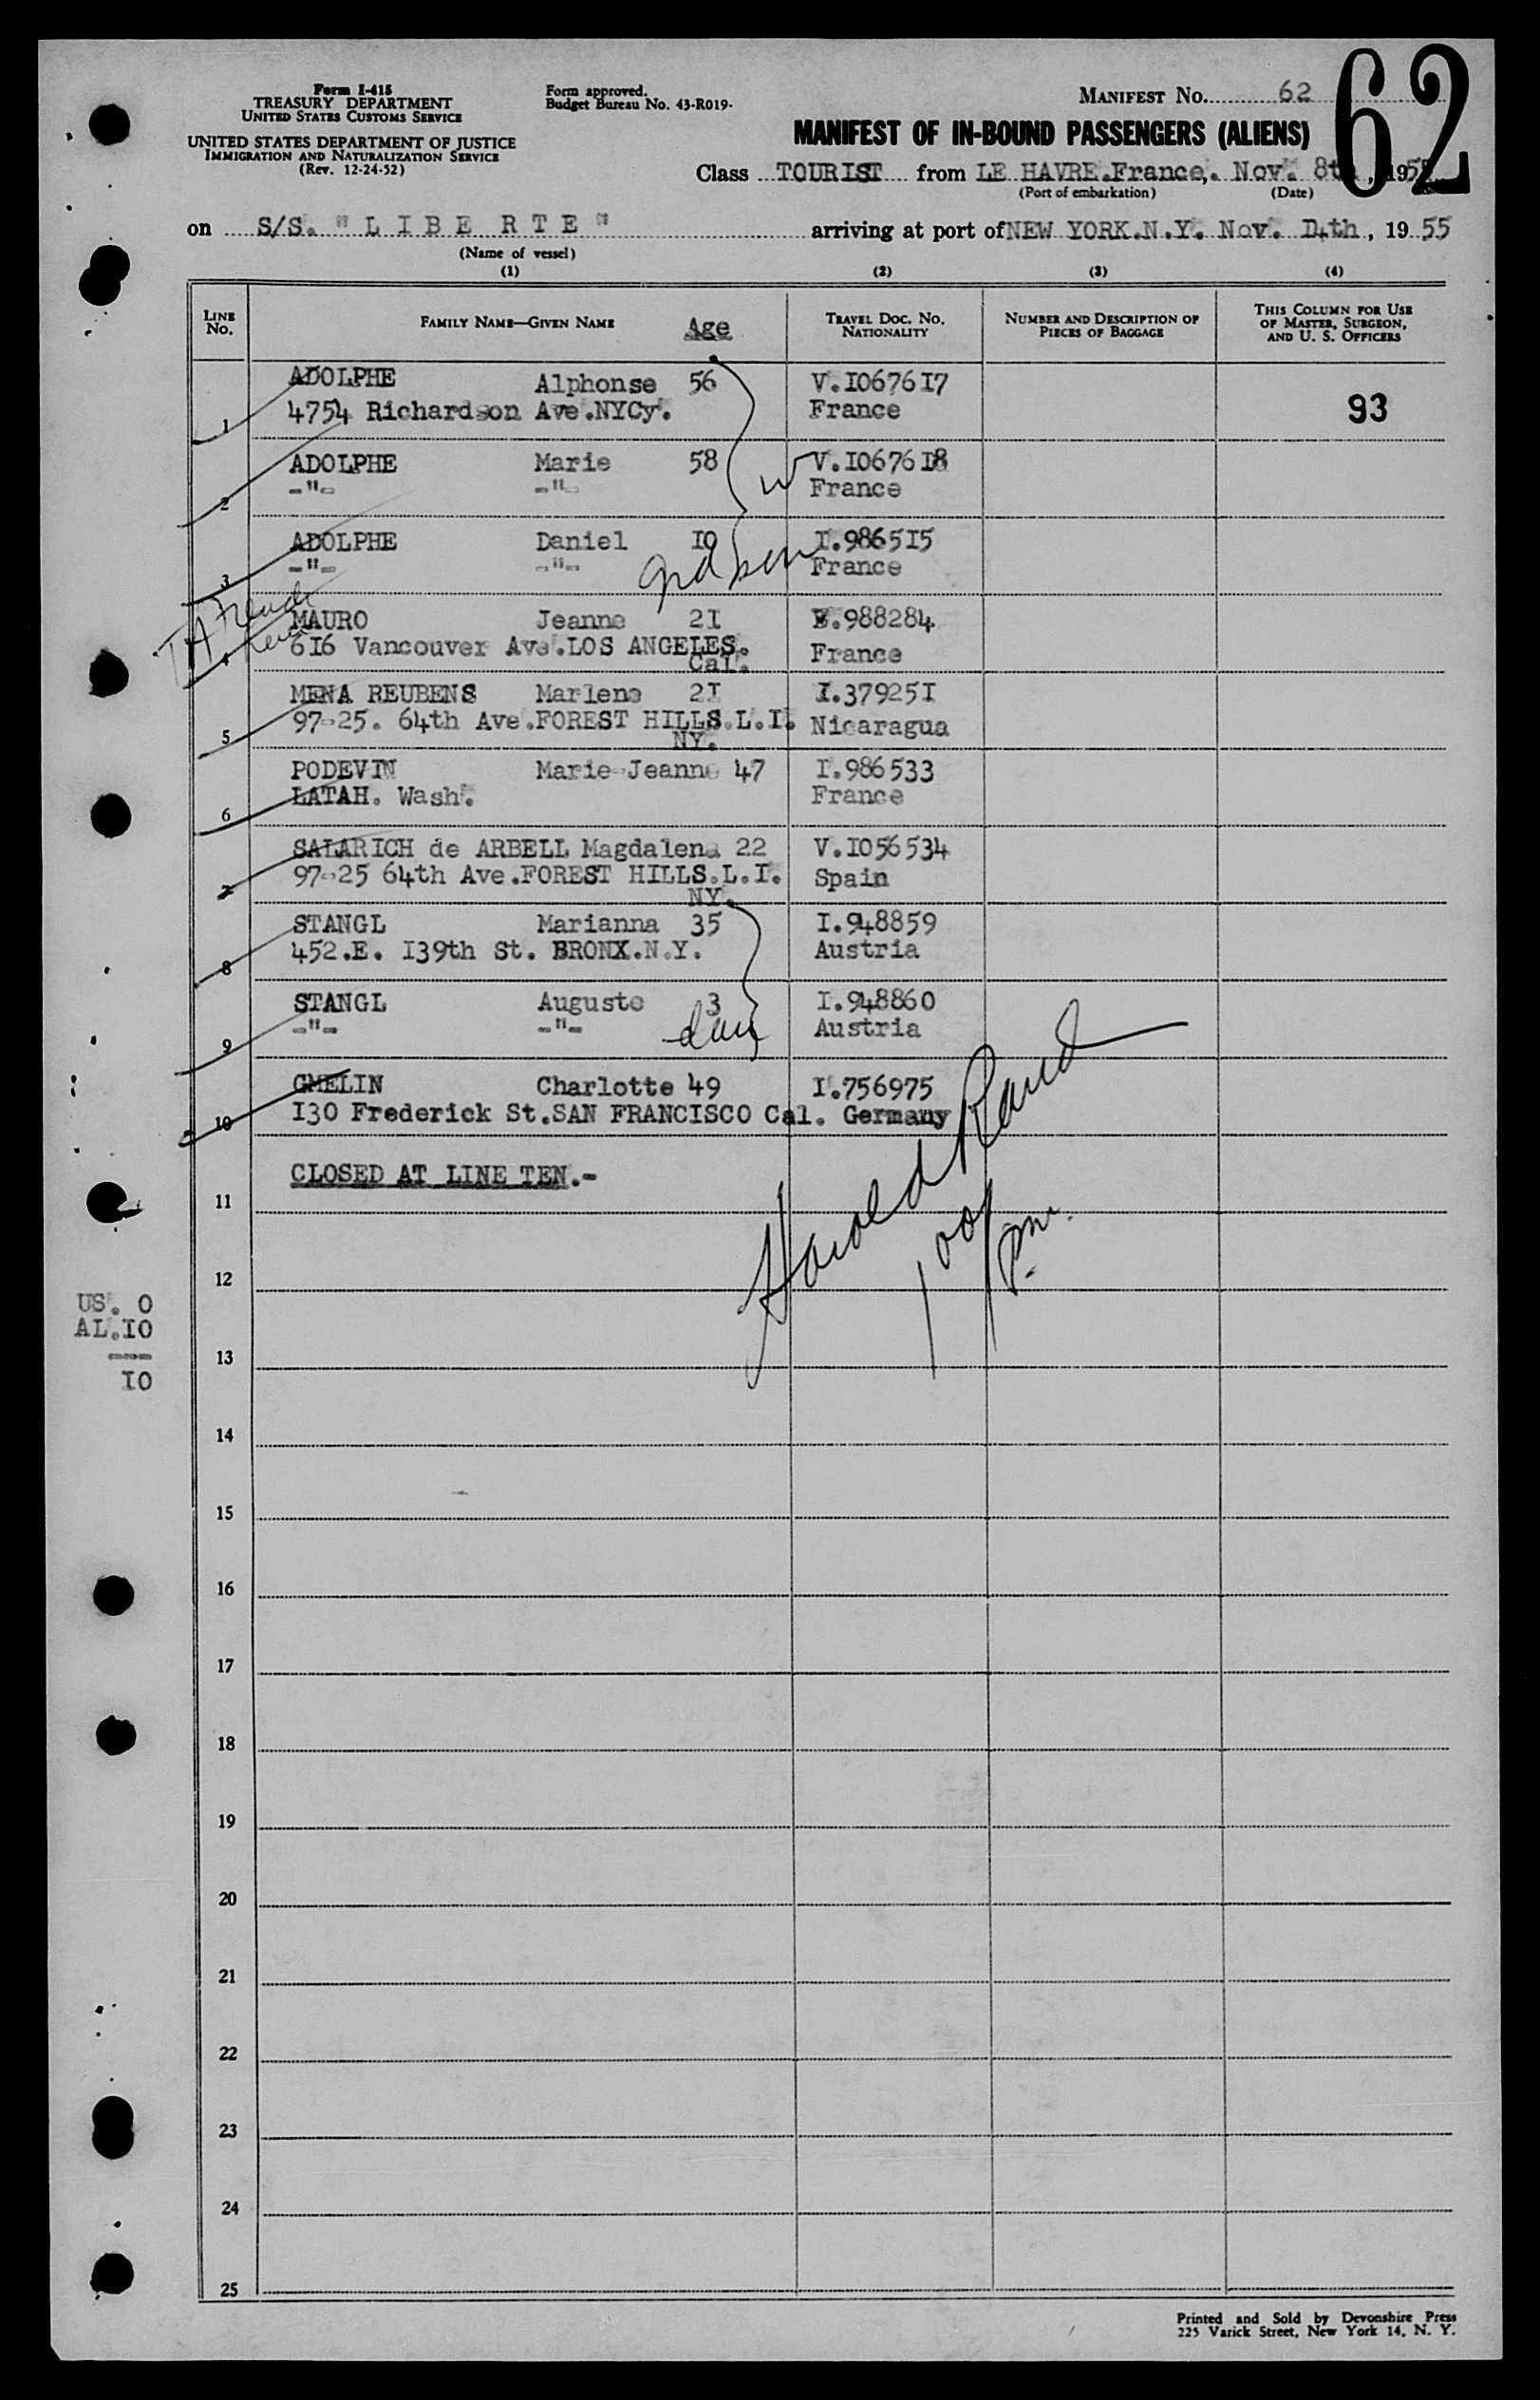 62
Form I-415
TREASURY DEPARTMENT
UNITED STATES CUSTOMS SERVICE
UNITED STATES DEPARTMENT OF JUSTICE
IMMIGRATION AND NATURALIZATION SERVICE
(Rev. 12-24-52)
Form approved.
Budget Bureau No. 43-R019-
MANIFEST No. 62
MANIFEST OF IN-BOUND PASSENGERS (ALIENS)
Class TOURIST from LE HAVRE.France,. Nov. 8th, 1955
(Port of embarkation) (Date)
on S/S. "L I B E R T E" arriving at port of NEW YORK.N.Y. Nov. I4th, 19 55
(Name of vessel)
(1) (2) (3) (4)
LINE No. FAMILY NAME—GIVEN NAME Age TRAVEL DOC. NO. NATIONALITY NUMBER AND DESCRIPTION OF PIECES OF BAGGAGE THIS COLUMN FOR USE OF MASTER, SURGEON, AND U. S. OFFICERS
1 ADOLPHE Alphonse 56 V.I0676I7
4754 Richardson Ave.NYCy. France 93
2 ADOLPHE Marie 58 w V.I0676I8
-"- -"- France
3 ADOLPHE Daniel I0 I.9865I5
-"- -"- gndson France
4 MAURO Jeanne 2I 988284
6I6 Vancouver Ave.LOS ANGELES. Cal. France
5 MENA REUBENS Marlene 2I I.37925I
97-25. 64th Ave.FOREST HILLS.L.I. NY. Nicaragua
6 PODEVIN Marie-Jeanne 47 I.986533
LATAH. Wash. France
7 SALARICH de ARBELL Magdalena 22 V.I056534
97-25 64th Ave.FOREST HILLS.L.I. NY. Spain
8 STANGL Marianna 35 I.948859
452.E. I39th St. BRONX.N.Y. Austria
9 STANGL Auguste 3 I.948860
-"- -"- dau Austria
10 GMELIN Charlotte 49 I.756975
I30 Frederick St.SAN FRANCISCO Cal. Germany
11 CLOSED AT LINE TEN.-
Harold Rand
100 pm.
12
US. 0
AL.I0
---
I0
13
14
15
16
17
18
19
20
21
22
23
24
25
Printed and Sold by Devonshire Press
225 Varick Street, New York 14, N. Y.